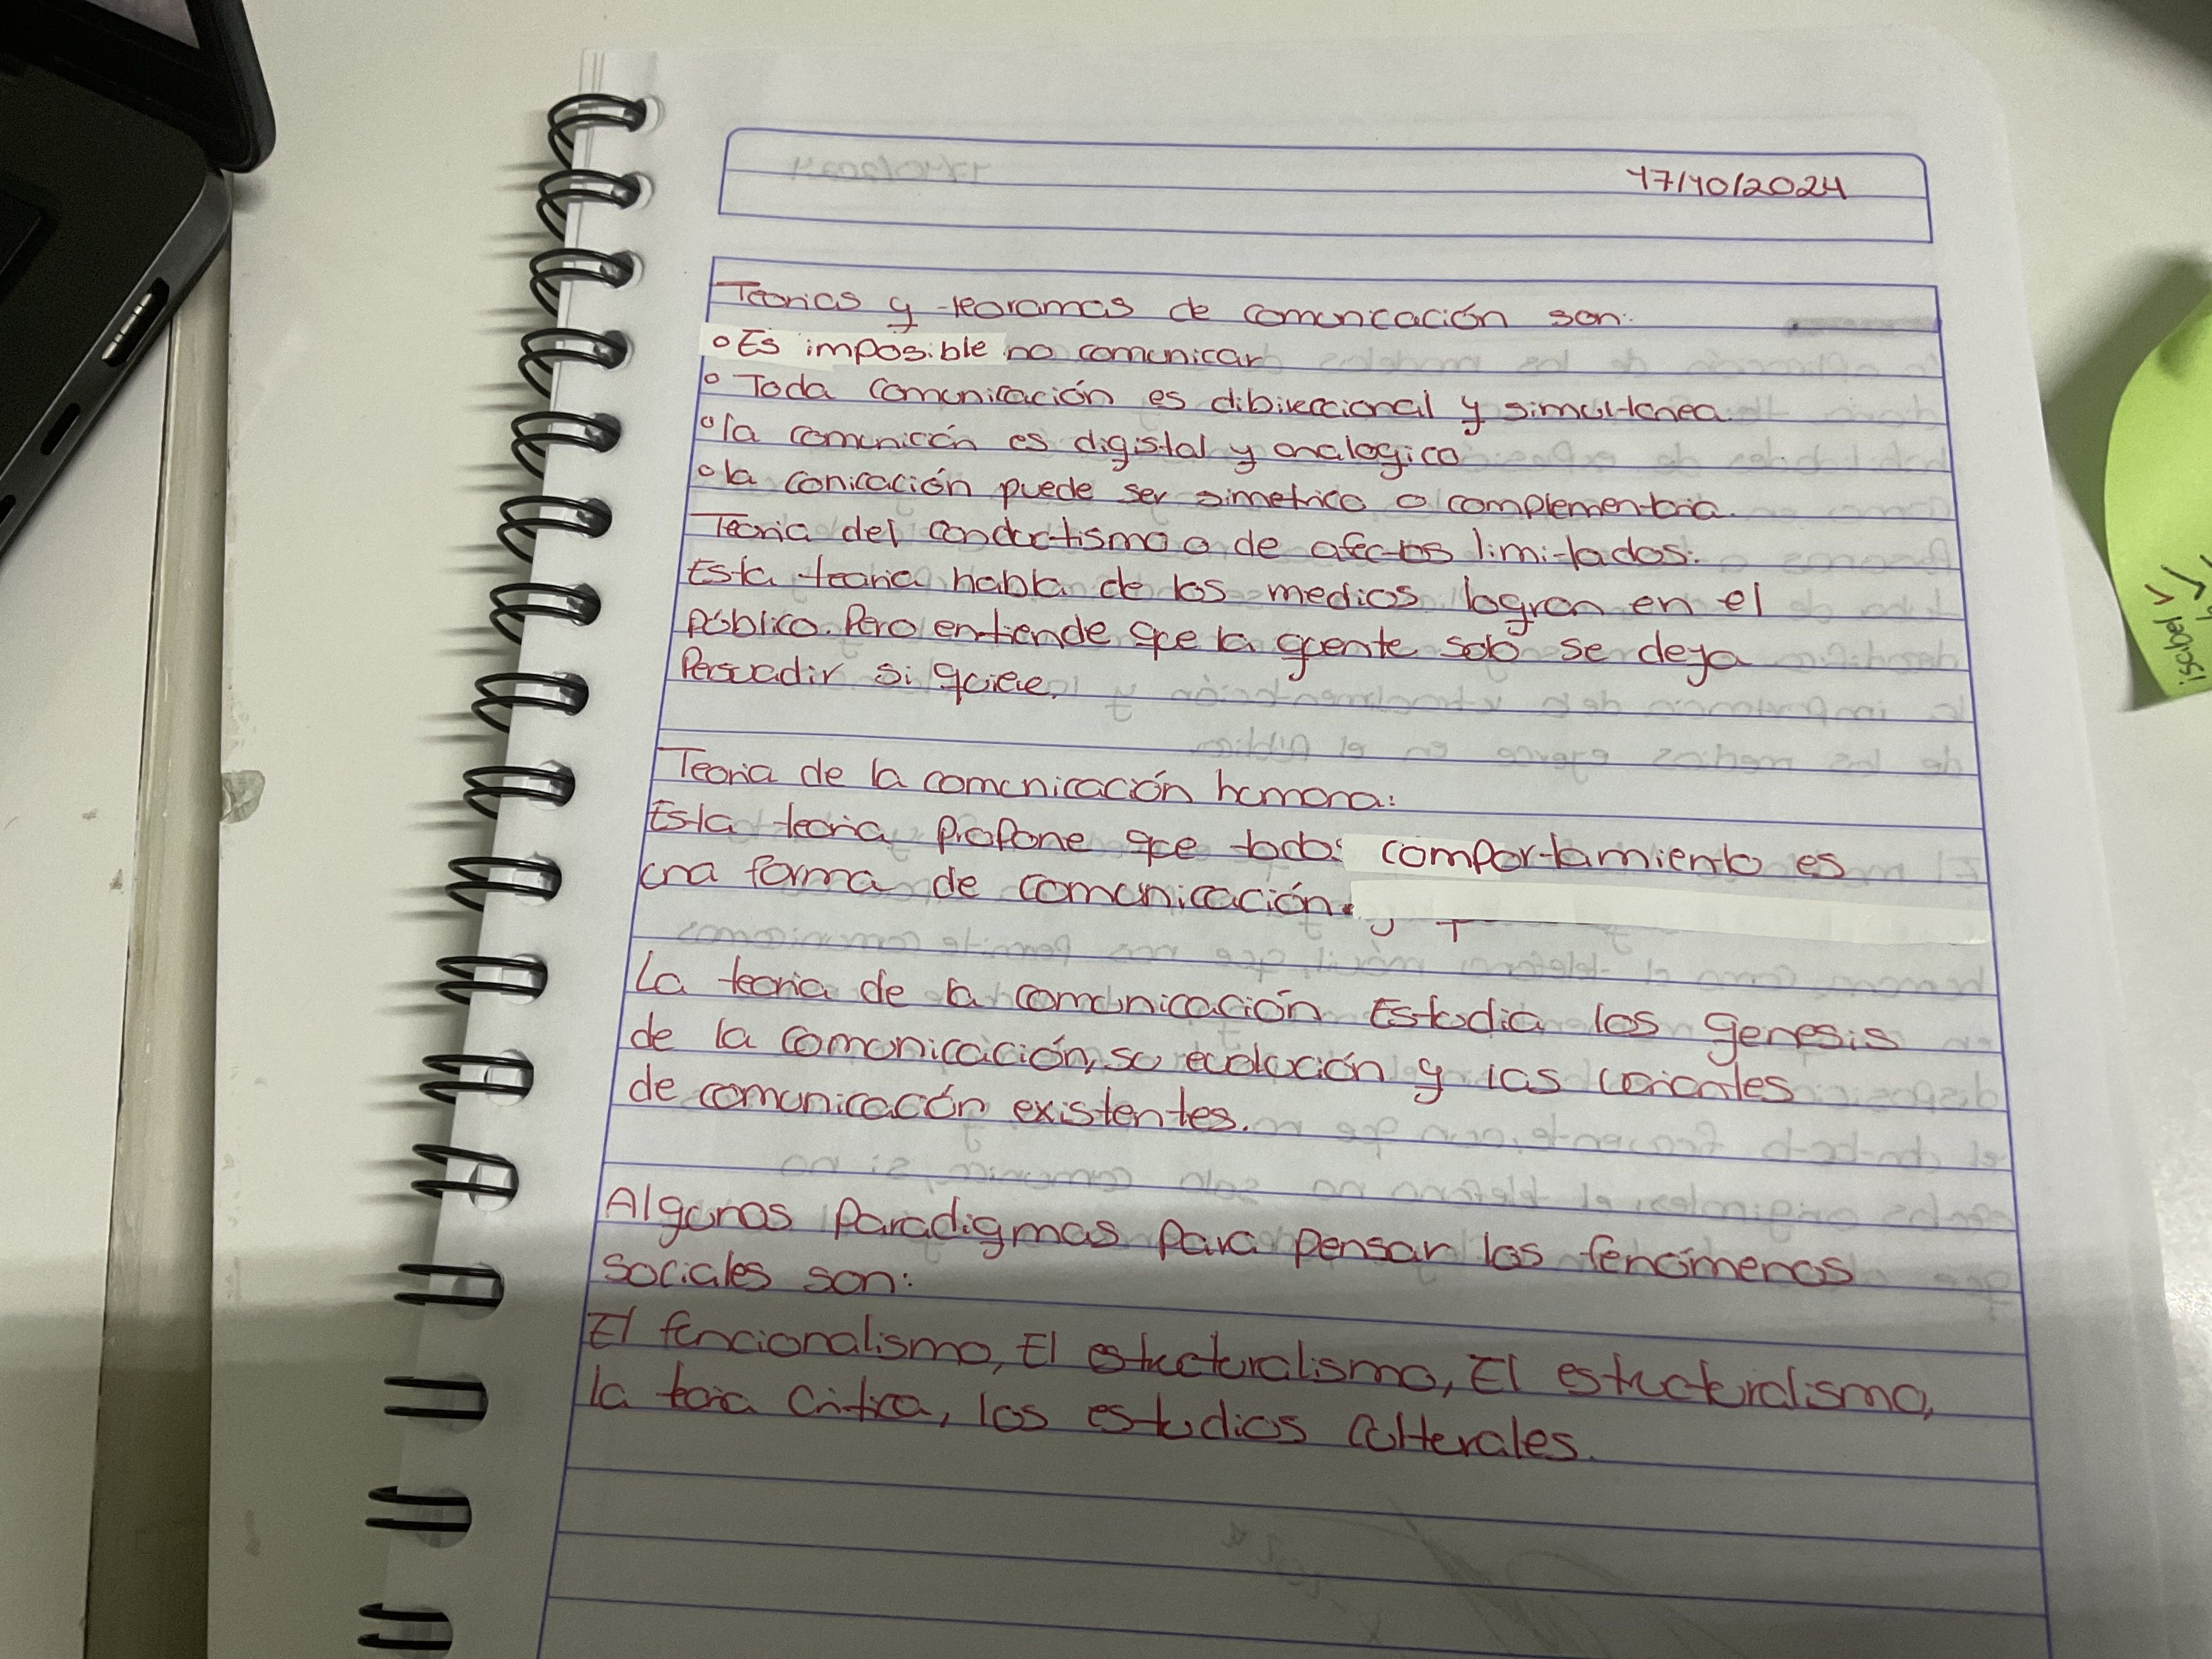 17/10/2024
Teorias y teoramas de comunicación son:
o Es imposible no comunicar
o Toda comunicación es dibireccional y simultanea.
o la comunición es digistal y analogico
o la conicación puede ser simetrico o complementaria.
Teoria del conductismo o de afectos limitados:
Esta teoria habla de los medios logran en el
público. Pero entiende que la gente solo se deja
Persuadir si quiere.
Teoria de la comunicación humana:
Esta teoria propone que todo comportamiento es
una forma de comunicación.
La teoria de la comunicación Estudia los genesis
de la comunicación, su evolución y las canales
de comunicación existentes.
Algunos Paradigmas para pensar los fenómenos
sociales son:
El funcionalismo, El estucturalismo, El estucturalismo,
la teoria Critica, los estudios Culturales.
isabel